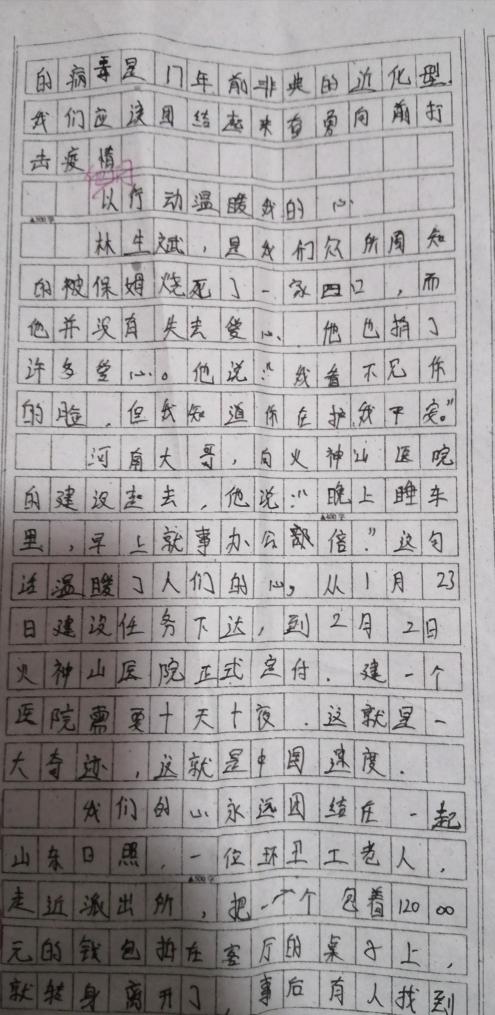 的病毒是17年前非典的近化型.
我们应该团结起来奋勇向前打
击疫情
以行动温暖我的心
▲300字
林生斌，是我们众所周知
的被保姆烧死了一家四口，而
他并没有失去爱心.他也捐了
许多爱心。他说:"我看不见你
的脸，但我知道你在护我平安。"
河南大哥，向火神山医院
的建设赶去，他说:"晚上睡车
▲400字
里，早上就事办公倍。"这句
话温暖了人们的心，从1月23
日建设任务下达，到2月2日
火神山医院正式定付.建一个
医院需要十天十夜.这就是一
大奇迹，这就是中国速度.
我们的心永远团结在一起
山东日照，一位环卫工老人，
▲500字
走近派出所，把一个包着12000
元的钱包拍在客厅的桌子上，
就转身离开了，事后有人找到